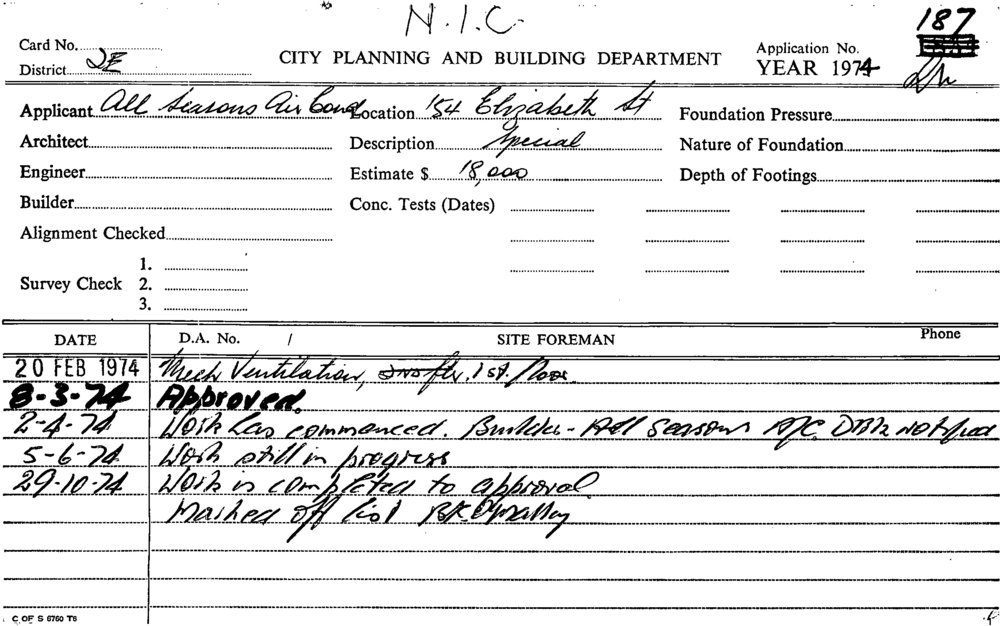 N.I.C.
187
Card No.
CITY PLANNING AND BUILDING DEPARTMENT
Application No.
District 2E
YEAR 1974
Applicant All Seasons Air Cond
Location 154 Elizabeth St
Foundation Pressure
Architect
Description Special
Nature of Foundation
Engineer
Estimate $ 18,000
Depth of Footings
Builder
Conc. Tests (Dates)
Alignment Checked
1.
Survey Check 2.
3.
DATE D.A. No. / SITE FOREMAN Phone
20 FEB 1974 Mech Ventilation, 1st. floor.
8-3-74 Approved.
2-4-74 Work has commenced. Builder - All Seasons A/C. notified
5-6-74 Work still in progress
29-10-74 Work is completed to approval.
Marked off list B.K. O'Malley
C OF S 6760 T6